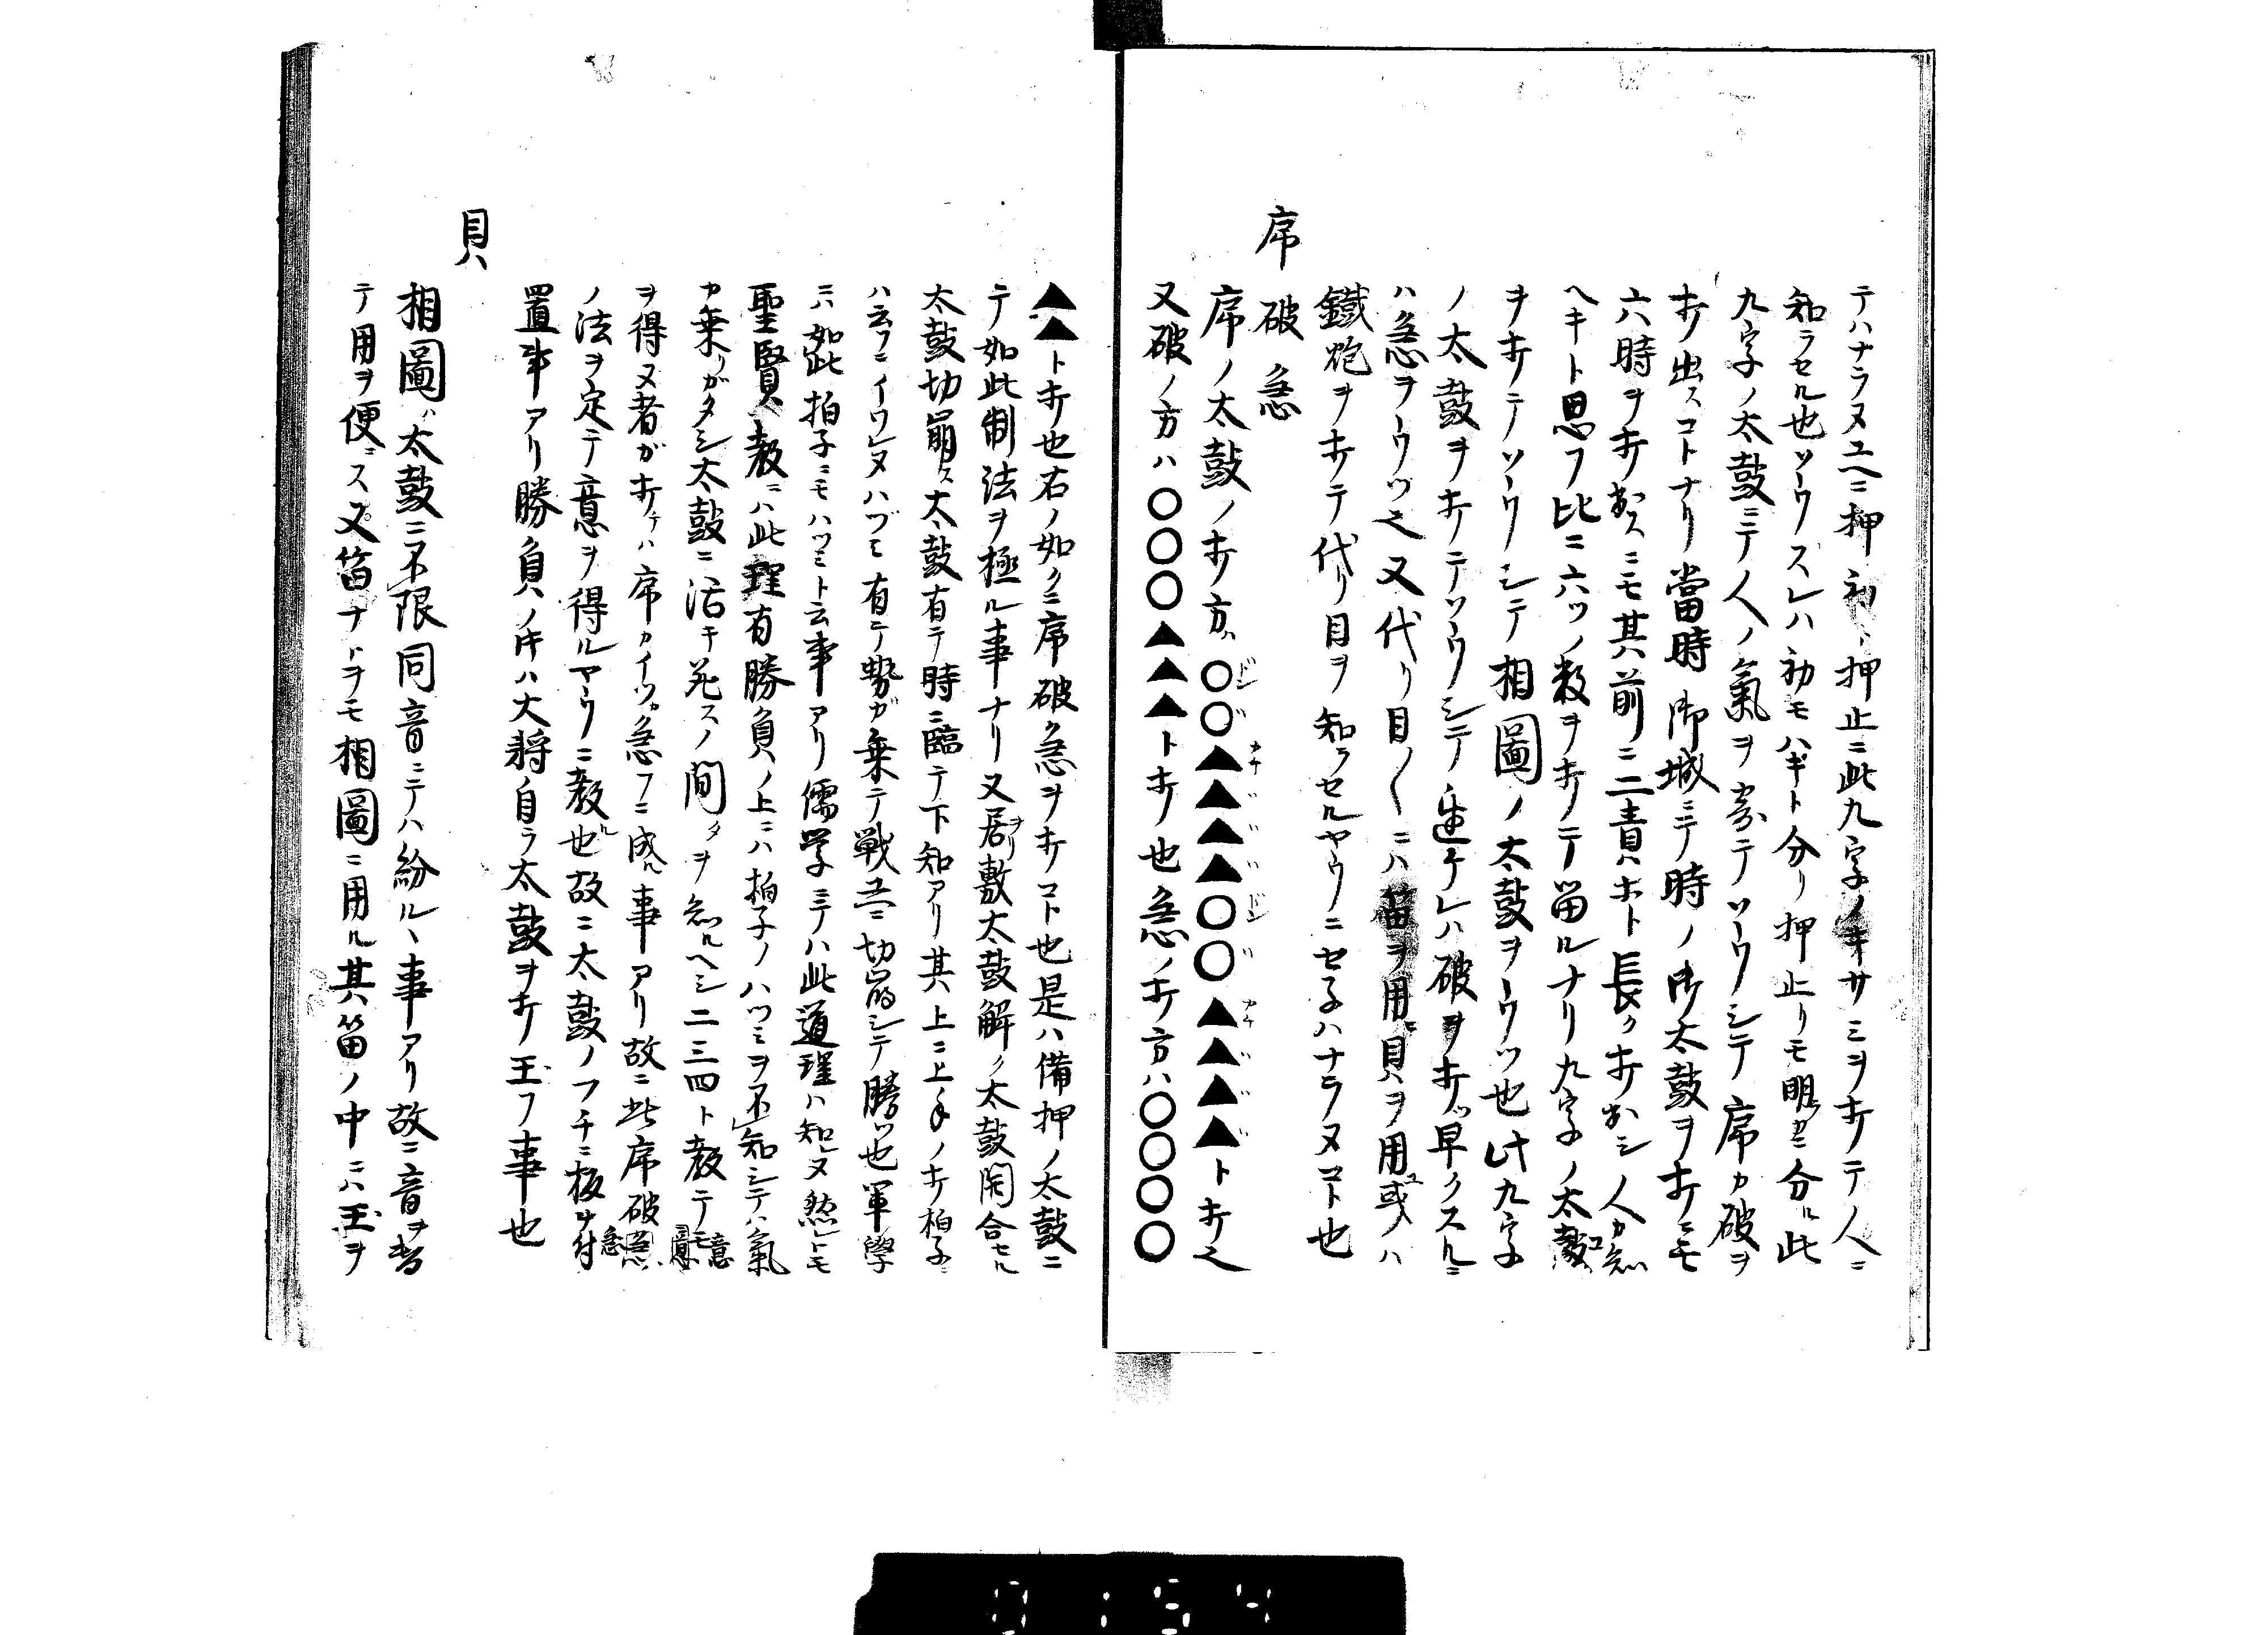 テハナラヌユヘニ押初ト押止ニ此九字ノキサミヲ打テ人ニ
知ラセル也ソウスレハ初モハギト分リ押止リモ明カニ分ル此
九字ノ太鼓ニテ人ノ氣ヲ寄テソウシテ席カ破ヲ
打出スコトナリ當時御城ニテ時ノ御太鼓ヲ打ニモ
六時ヲ打出スニモ其前ニ二責ホト長ク打出シ人カ急
ヘキト思フ比ニ六ツノ数ヲ打テ留ルナリ九字ノ太鼓
ヲ打テソウシテ相圖ノ太鼓ヲウツ也此九字
ノ太鼓ヲ打テソウシテ進ケレハ破ヲ打ツ早クスルニ
ハ急ヲウツ之又代リ目〱ニハ笛ヲ用ヒ貝ヲ用ユ或ハ
鐵炮ヲ打テ代リ目ヲ知ラセルヤウニセ子ハナラヌコト也
席 破 急
席ノ太鼓ノ打方ハ○○▲▲▲▲○○▲▲▲▲ト打之
又破ノ方ハ○○○▲▲▲ト打也急ノ打方ハ○○○○
▲▲ト打也右ノ如クニ席破急ヲ打コト也是ハ備押ノ太鼓ニ
テ如此制法ヲ極ル事ナリ又居敷太鼓解ク太鼓閧合セル
太鼓切崩ス太鼓有テ時ニ臨テ下知アリ其上ニ上手ノ打拍子
ハ云フニイワレヌハヅミ有テ勢ガ乗テ戦ユヘニ切崩シテ勝ツ也軍學
ニハ如此拍子ニモハツミト云事アリ儒学ニテハ此道理ハ知レヌ然レトモ
聖賢ノ教ニハ此理有勝負ノ上ニハ拍子ノハツミヲ不知シテハ氣
カ乗リガタシ太鼓ニ活キ死スノ間タヲ知ルヘシ二三四ト教テモ意
ヲ得ヌ者ガ打テハ席カイツカ急フニ成ル事アリ故ニ此席破急
ノ法ヲ定テ意ヲ得ルヤウニ教ル也故ニ太鼓ノフチニ板ヲ付
置事アリ勝負ノ時ハ大将自ラ太鼓ヲ打玉フ事也
貝
相圖ハ太鼓ニ不限同音ニテハ紛ルヽ事アリ故ニ音ヲ替
テ用ヲ便ニス又笛ナトヲモ相圖ニ用ル其笛ノ中ニハ玉ヲ